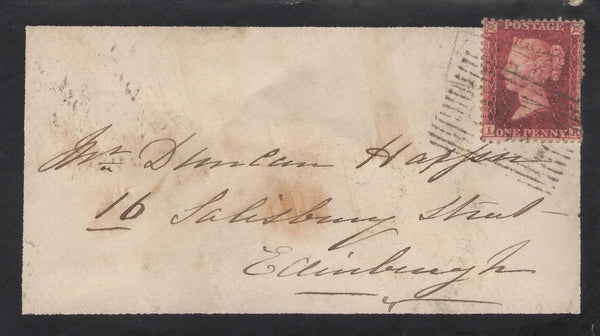 POSTAGE
ONE PENNY
Mr Duncan
16 Salisbury Street
Edinburgh